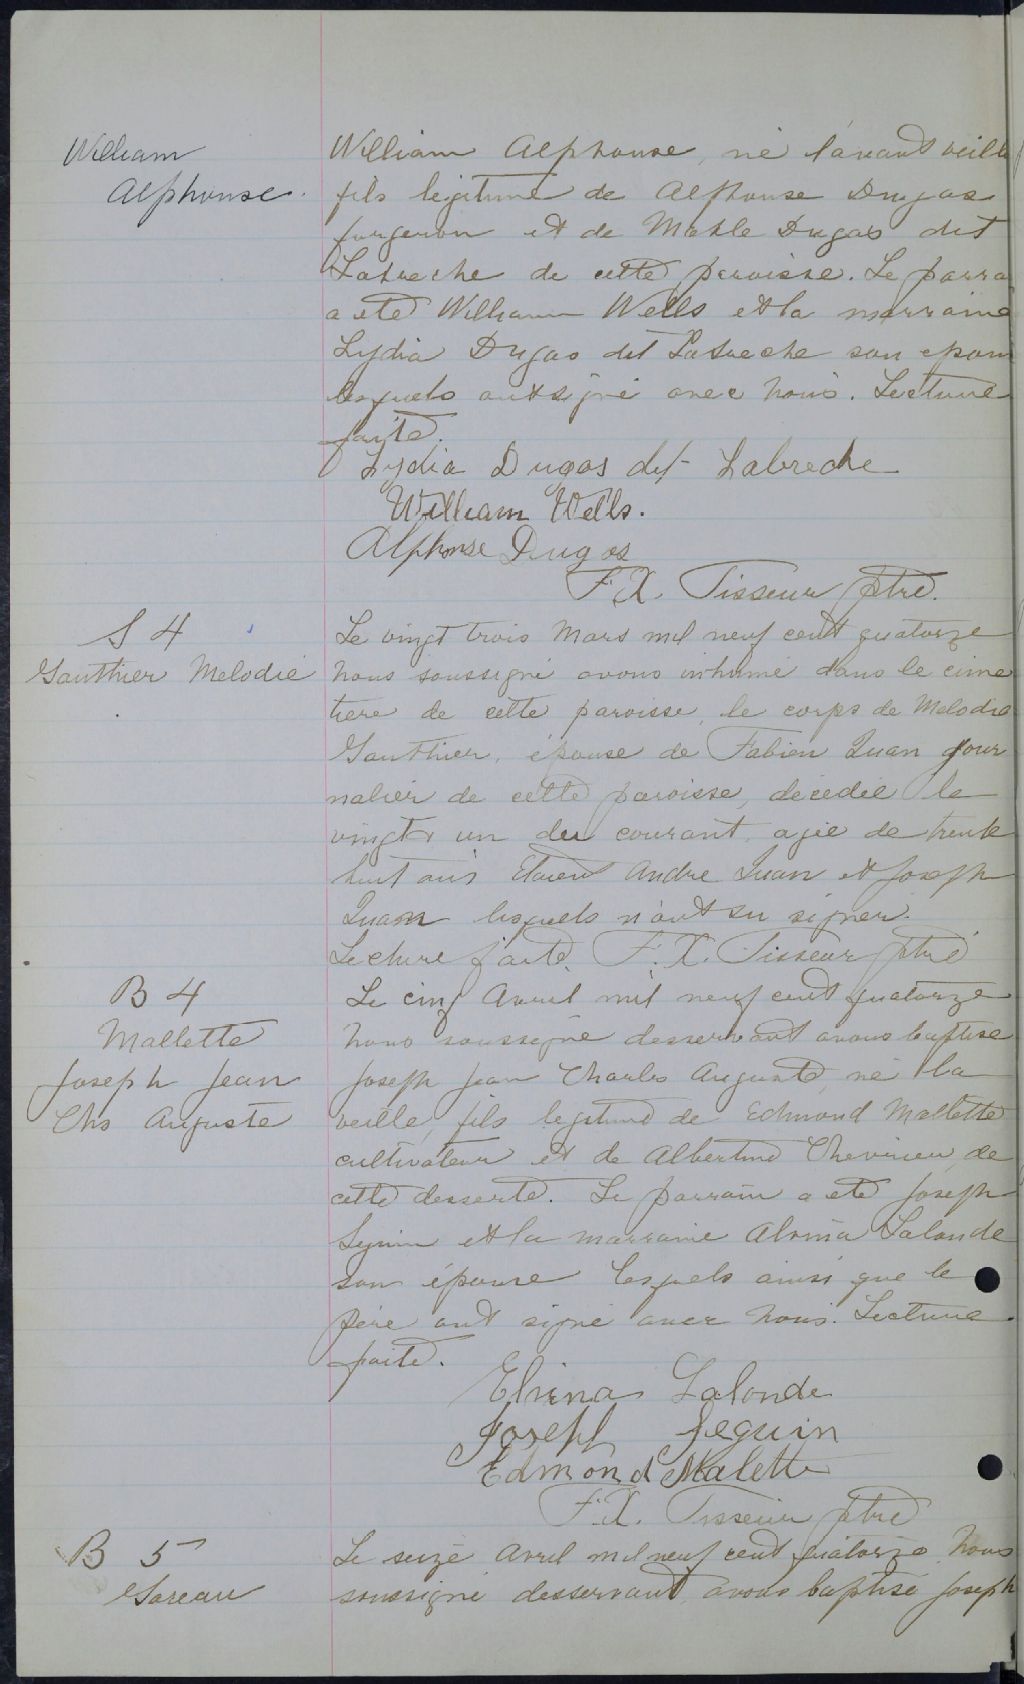 William
Alphonse.
William Alphonse, né l'avant veille
fils légitime de Alphonse Dugas
forgeron et de Mable Dugas dit
Labreche de cette paroisse. Le parra
a été William Wells et la marraine
Lydia Dugas dit Labreche son epou
lesquels ont signé avec nous. Lecture
faite.
Lydia Dugas dit Labreche
William Wells.
Alphonse Dugas
F.X. Tisseur ptre.
S 4
Gauthier Melodie
Le vingt trois Mars mil neuf cent quatorze
nous soussigné avons inhumé dans le cime
tière de cette paroisse, le corps de Melodie
Gauthier, épouse de Fabien Quan jour
nalier de cette paroisse, décédée le
vingt un du courant, agée de trente
huit ans Etaient Andre Quan et Joseph
Quan lesquels n'ont su signer.
Lecture faite. F.X. Tisseur ptre
B 4
Mallette
Joseph Jean
Chs Auguste
Le cinq Avril mil neuf cent quatorze
nous soussigné desservant avons baptisé
Joseph Jean Charles Auguste, né la
veille, fils légitime de Edmond Mallette
cultivateur et de Albertine de
cette desserte. Le parrain a été Joseph
Seguin et la marraine Alvina Lalonde
son épouse lesquels ainsi que le
père ont signé avec nous. Lecture
faite.
Elvina Lalonde
Joseph Seguin
Edmond Malette
F.X. Tisseur ptre
B 5
Gareau
Le seize Avril mil neuf cent quatorze nous
soussigné desservant, avons baptisé Joseph